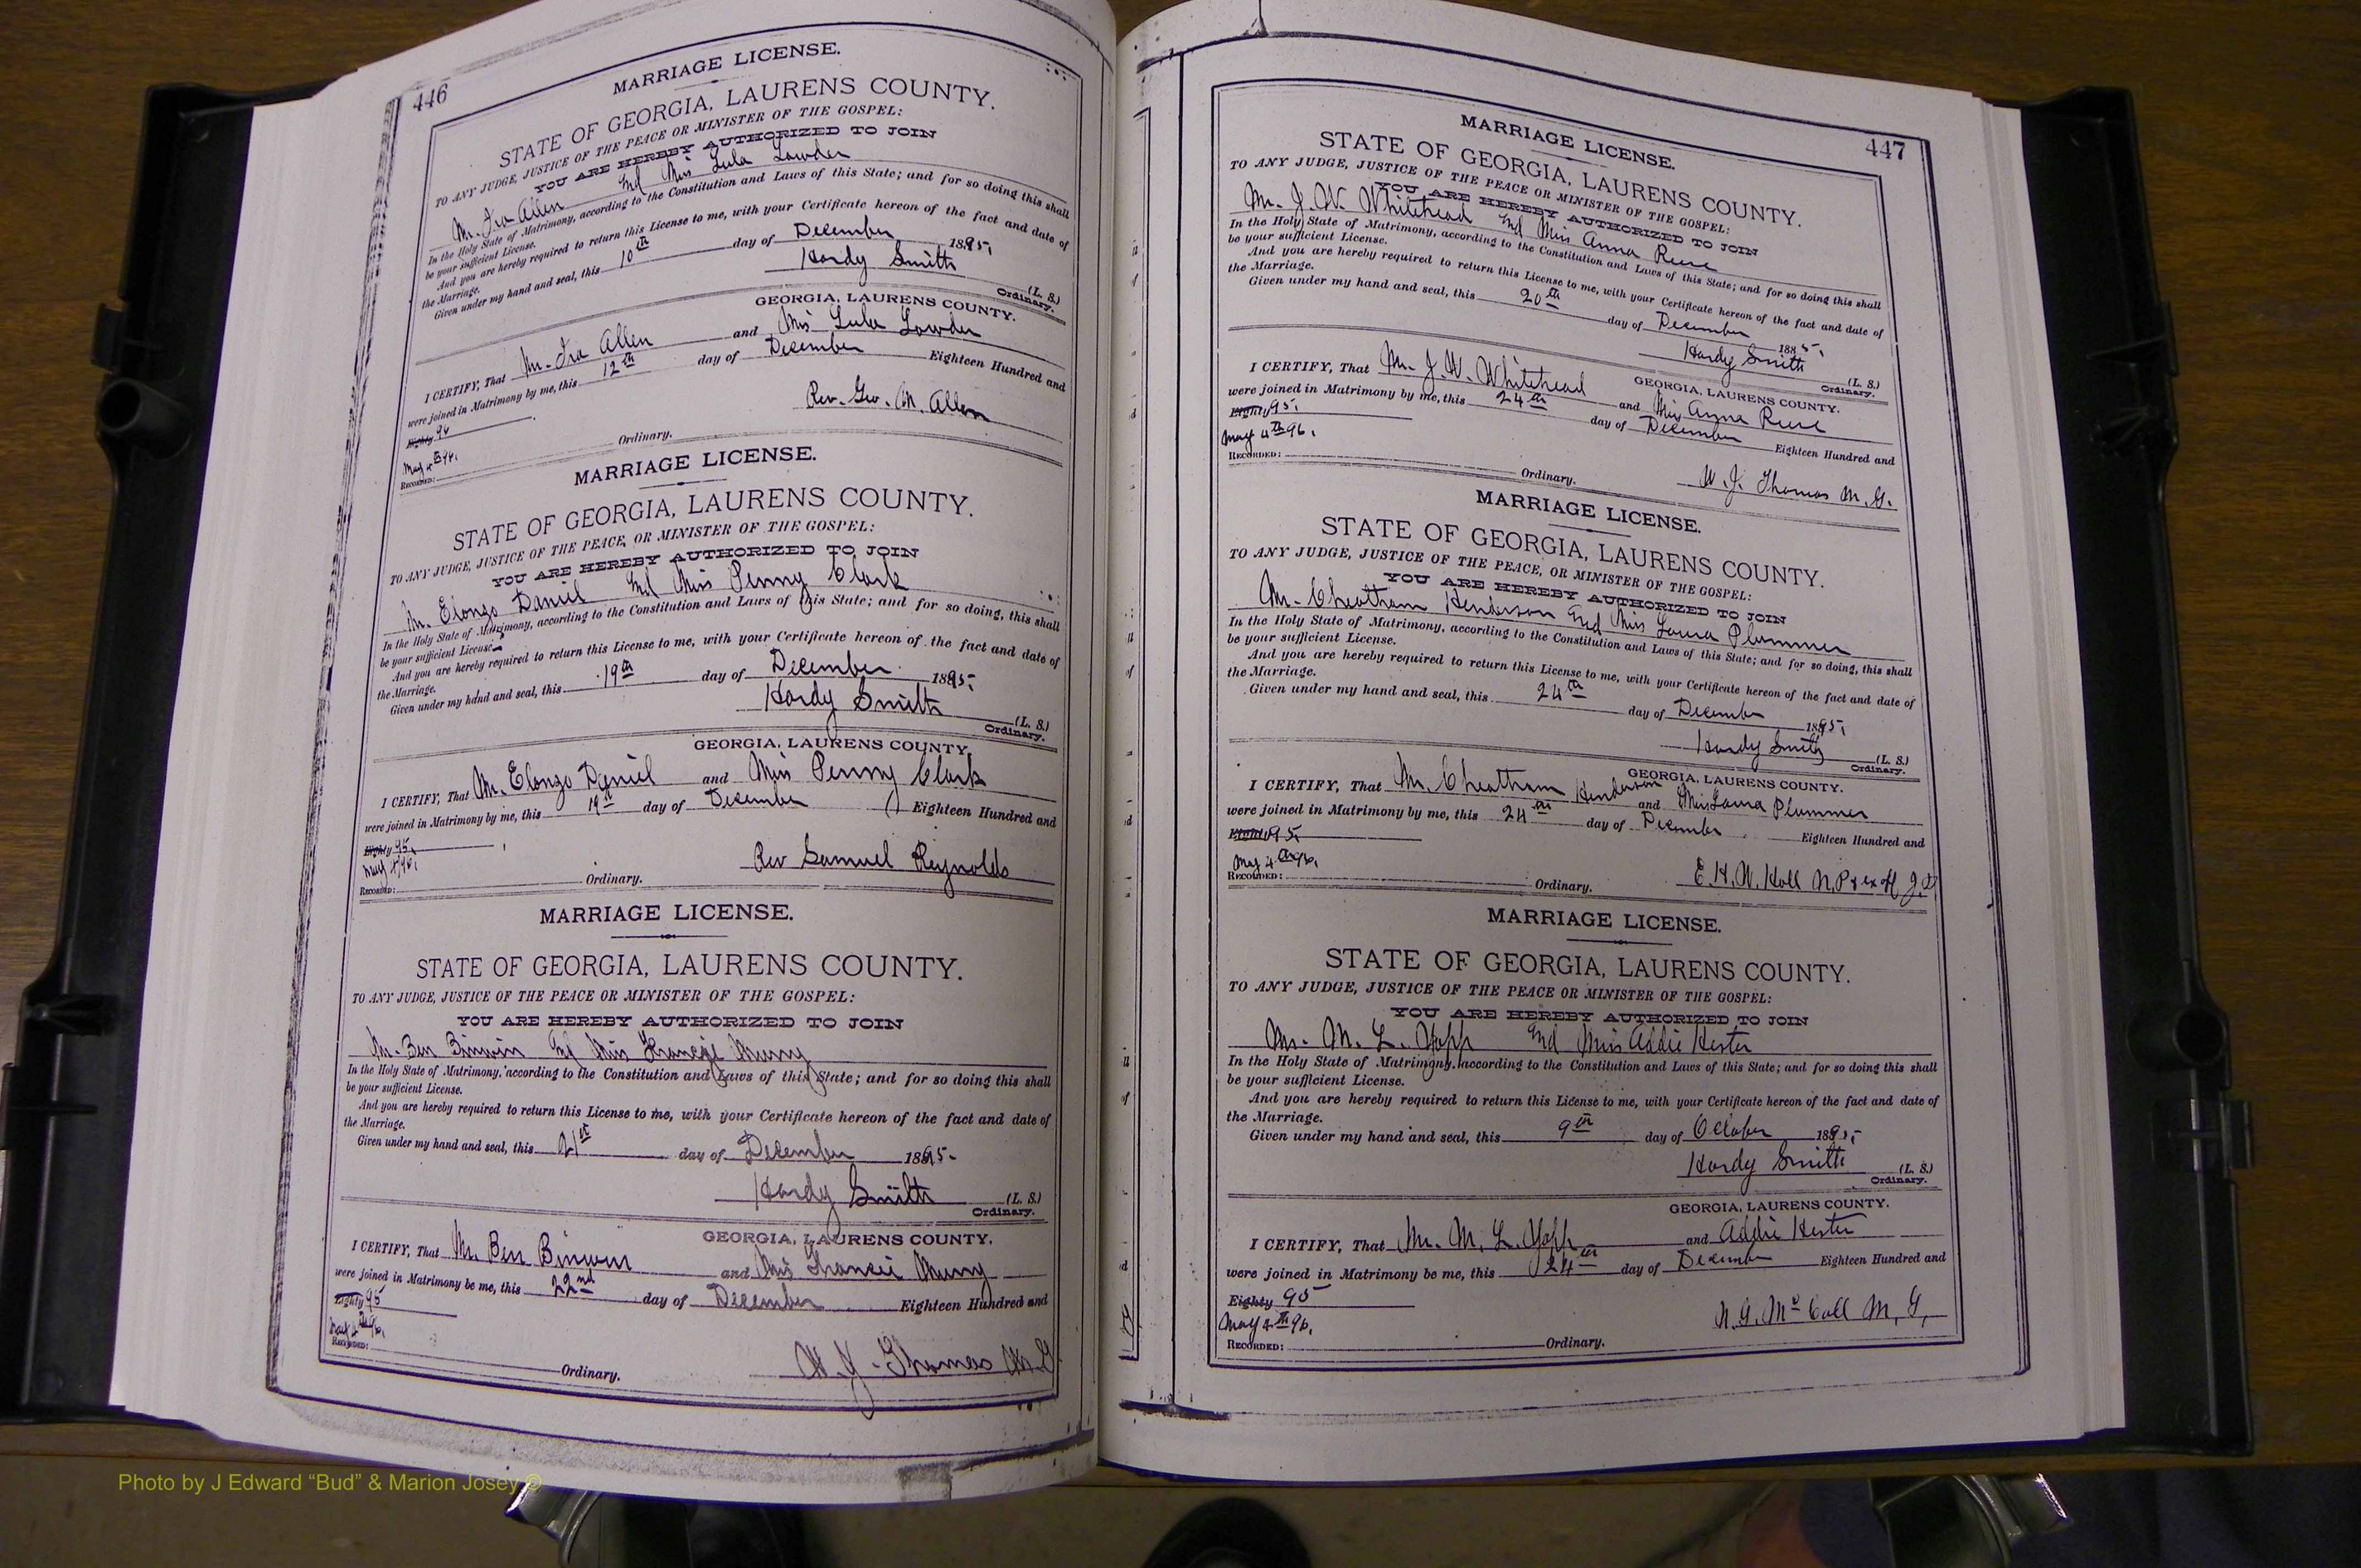 446
MARRIAGE LICENSE.
STATE OF GEORGIA, LAURENS COUNTY.
TO ANY JUDGE, JUSTICE OF THE PEACE OR MINISTER OF THE GOSPEL:
YOU ARE HEREBY AUTHORIZED TO JOIN
Mr. Ira Allen And Miss Lula Lowder
In the Holy State of Matrimony, according to the Constitution and Laws of this State; and for so doing this shall
be your sufficient License.
And you are hereby required to return this License to me, with your Certificate hereon of the fact and date of
the Marriage.
Given under my hand and seal, this 10th day of December 1895,
Hardy Smith (L. S.)
Ordinary.
GEORGIA, LAURENS COUNTY.
I CERTIFY, That Mr. Ira Allen and Miss Lula Lowder
were joined in Matrimony by me, this 12th day of December Eighteen Hundred and
Eighty
Rev. Geo. M. Allen
RECORDED: Ordinary.
MARRIAGE LICENSE.
STATE OF GEORGIA, LAURENS COUNTY.
TO ANY JUDGE, JUSTICE OF THE PEACE, OR MINISTER OF THE GOSPEL:
YOU ARE HEREBY AUTHORIZED TO JOIN
Mr. Elonzo Daniel And Miss Penny Clark
In the Holy State of Matrimony, according to the Constitution and Laws of this State; and for so doing, this shall
be your sufficient License.
And you are hereby required to return this License to me, with your Certificate hereon of the fact and date of
the Marriage.
Given under my hand and seal, this 19th day of December 1895,
Hardy Smith (L. S.)
Ordinary.
GEORGIA, LAURENS COUNTY,
I CERTIFY, That Mr. Elonzo Daniel and Miss Penny Clark
were joined in Matrimony by me, this 19th day of December Eighteen Hundred and
Eighty 95,
Rev Samuel Reynolds
RECORDED: Ordinary.
MARRIAGE LICENSE.
STATE OF GEORGIA, LAURENS COUNTY.
TO ANY JUDGE, JUSTICE OF THE PEACE OR MINISTER OF THE GOSPEL:
YOU ARE HEREBY AUTHORIZED TO JOIN
Mr. Ben And Miss
In the Holy State of Matrimony, according to the Constitution and Laws of this State; and for so doing this shall
be your sufficient License.
And you are hereby required to return this License to me, with your Certificate hereon of the fact and date of
the Marriage.
Given under my hand and seal, this 21st day of December 1895-
Hardy Smith (L. S.)
Ordinary.
GEORGIA, LAURENS COUNTY,
I CERTIFY, That Mr. Ben and Miss
were joined in Matrimony be me, this 22nd day of December Eighteen Hundred and
Eighty 95
May 4th 96,
RECORDED:
W. J. Thomas M. G
Ordinary.
447
MARRIAGE LICENSE.
STATE OF GEORGIA, LAURENS COUNTY.
TO ANY JUDGE, JUSTICE OF THE PEACE OR MINISTER OF THE GOSPEL:
YOU ARE HEREBY AUTHORIZED TO JOIN
Mr. J. W. Whitehead And Miss Anna
In the Holy State of Matrimony, according to the Constitution and Laws of this State; and for so doing this shall
be your sufficient License.
And you are hereby required to return this License to me, with your Certificate hereon of the fact and date of
the Marriage.
Given under my hand and seal, this 20th day of December 1885,
Hardy Smith (L. S.)
Ordinary.
GEORGIA, LAURENS COUNTY.
I CERTIFY, That Mr. J. W. Whitehead and Miss Anna
were joined in Matrimony by me, this 24th day of December Eighteen Hundred and
Eighty 95,
May 4th 96,
RECORDED: Ordinary.
W. J. Thomas M. G.
MARRIAGE LICENSE.
STATE OF GEORGIA, LAURENS COUNTY.
TO ANY JUDGE, JUSTICE OF THE PEACE, OR MINISTER OF THE GOSPEL:
YOU ARE HEREBY AUTHORIZED TO JOIN
Mr. Cheatham Henderson And Miss Laura Plummer
In the Holy State of Matrimony, according to the Constitution and Laws of this State; and for so doing, this shall
be your sufficient License.
And you are hereby required to return this License to me, with your Certificate hereon of the fact and date of
the Marriage.
Given under my hand and seal, this 24th day of December 1895,
Hardy Smith (L. S.)
Ordinary.
GEORGIA, LAURENS COUNTY.
I CERTIFY, That Mr. Cheatham Henderson and Miss Laura Plummer
were joined in Matrimony by me, this 24th day of December Eighteen Hundred and
Eighty 95
May 4th 96,
RECORDED: Ordinary.
E. H. W. Hall N.P & ex off J.P
MARRIAGE LICENSE.
STATE OF GEORGIA, LAURENS COUNTY.
TO ANY JUDGE, JUSTICE OF THE PEACE OR MINISTER OF THE GOSPEL:
YOU ARE HEREBY AUTHORIZED TO JOIN
Mr. M. L. Yopp And Miss Addie Hester
In the Holy State of Matrimony, according to the Constitution and Laws of this State; and for so doing this shall
be your sufficient License.
And you are hereby required to return this License to me, with your Certificate hereon of the fact and date of
the Marriage.
Given under my hand and seal, this 9th day of October 1895-
Hardy Smith (L. S.)
Ordinary.
GEORGIA, LAURENS COUNTY.
I CERTIFY, That Mr. M. L. Yopp and Addie Hester
were joined in Matrimony be me, this 24th day of December Eighteen Hundred and
Eighty 95
May 4th 96,
N. G. McCall M. G,
RECORDED: Ordinary.
Photo by J Edward “Bud” & Marion Josey ©